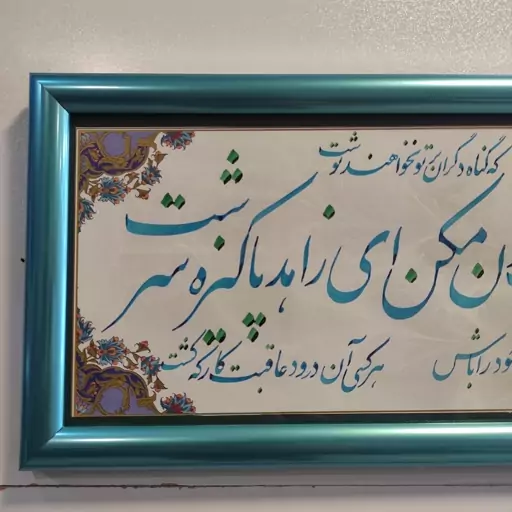 که گناه دگران بر تو نخواهند نوشت
مکن ای زاهد پاکیزه سرشت
خود را باش
هر کسی آن درود عاقبت کار که کشت